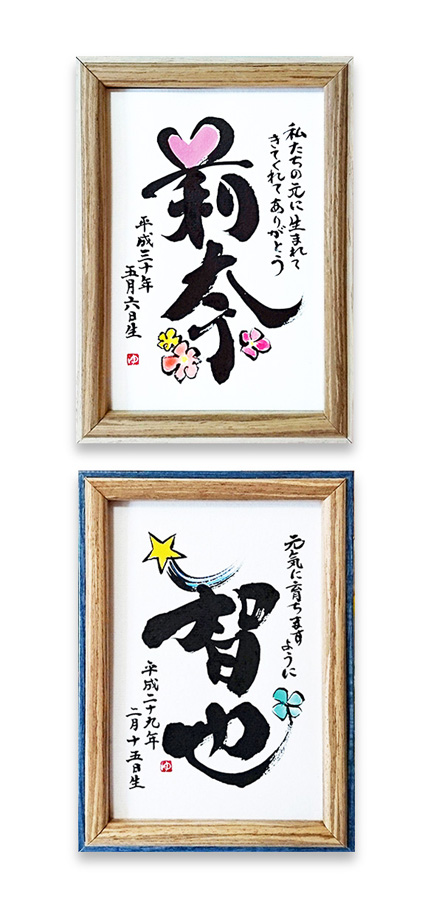 私たちの元に生まれて
きてくれてありがとう
莉奈
平成三十年
五月六日生
ゆ
元気に育ちます
ように
智也
平成二十九年
二月十五日生
ゆ